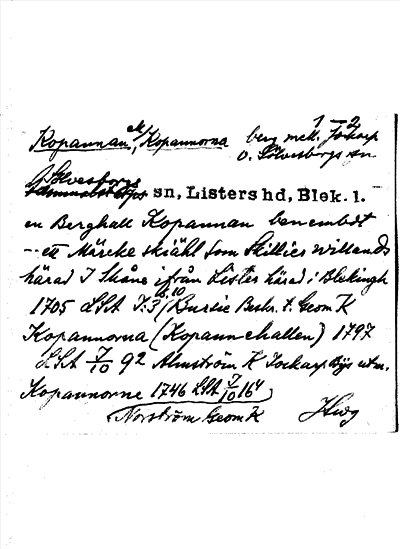 1–2
Kopannan, el/ Kopannorna berg mell. Jökarp
o. Sölvesborgs sn
Sölvesborgs sn, Listers hd, Blek. l.
en Berghall Kopannan benembdt
– ett Märcke skiähl som skillies Willands
härad I Skåne ifrån Listers härad i Blekingh
1705 LSA I:3 / 6.10 Bursie Beskr. t. Geom K
Kopannorna (Kopannehallen) 1797
LSA 7/10 92 Almström K Jockarp Bys utm.
Kopannorne 1746 LSA 7/10 164
Norström Geom K Hwg